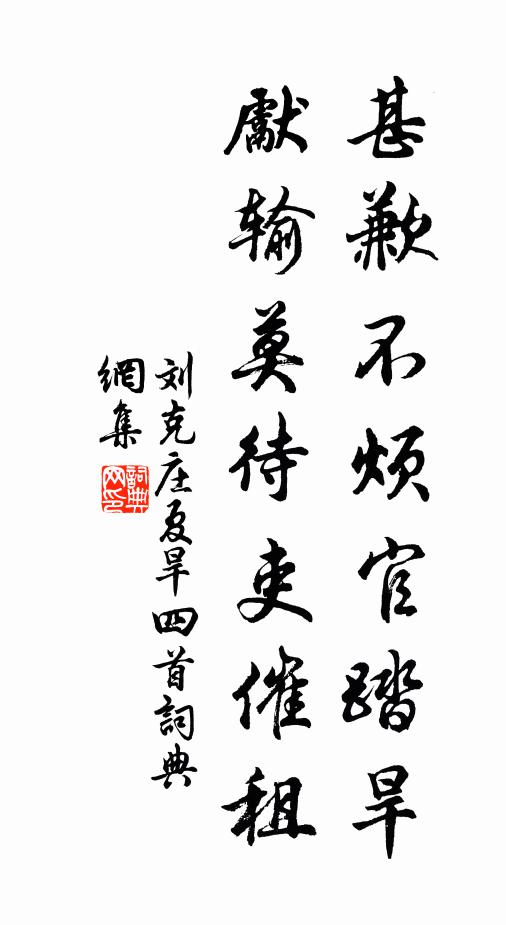 甚歉不烦官踏旱
獻输莫待吏催租
刘克庄夏旱四首詞典
網集
詞典
网印